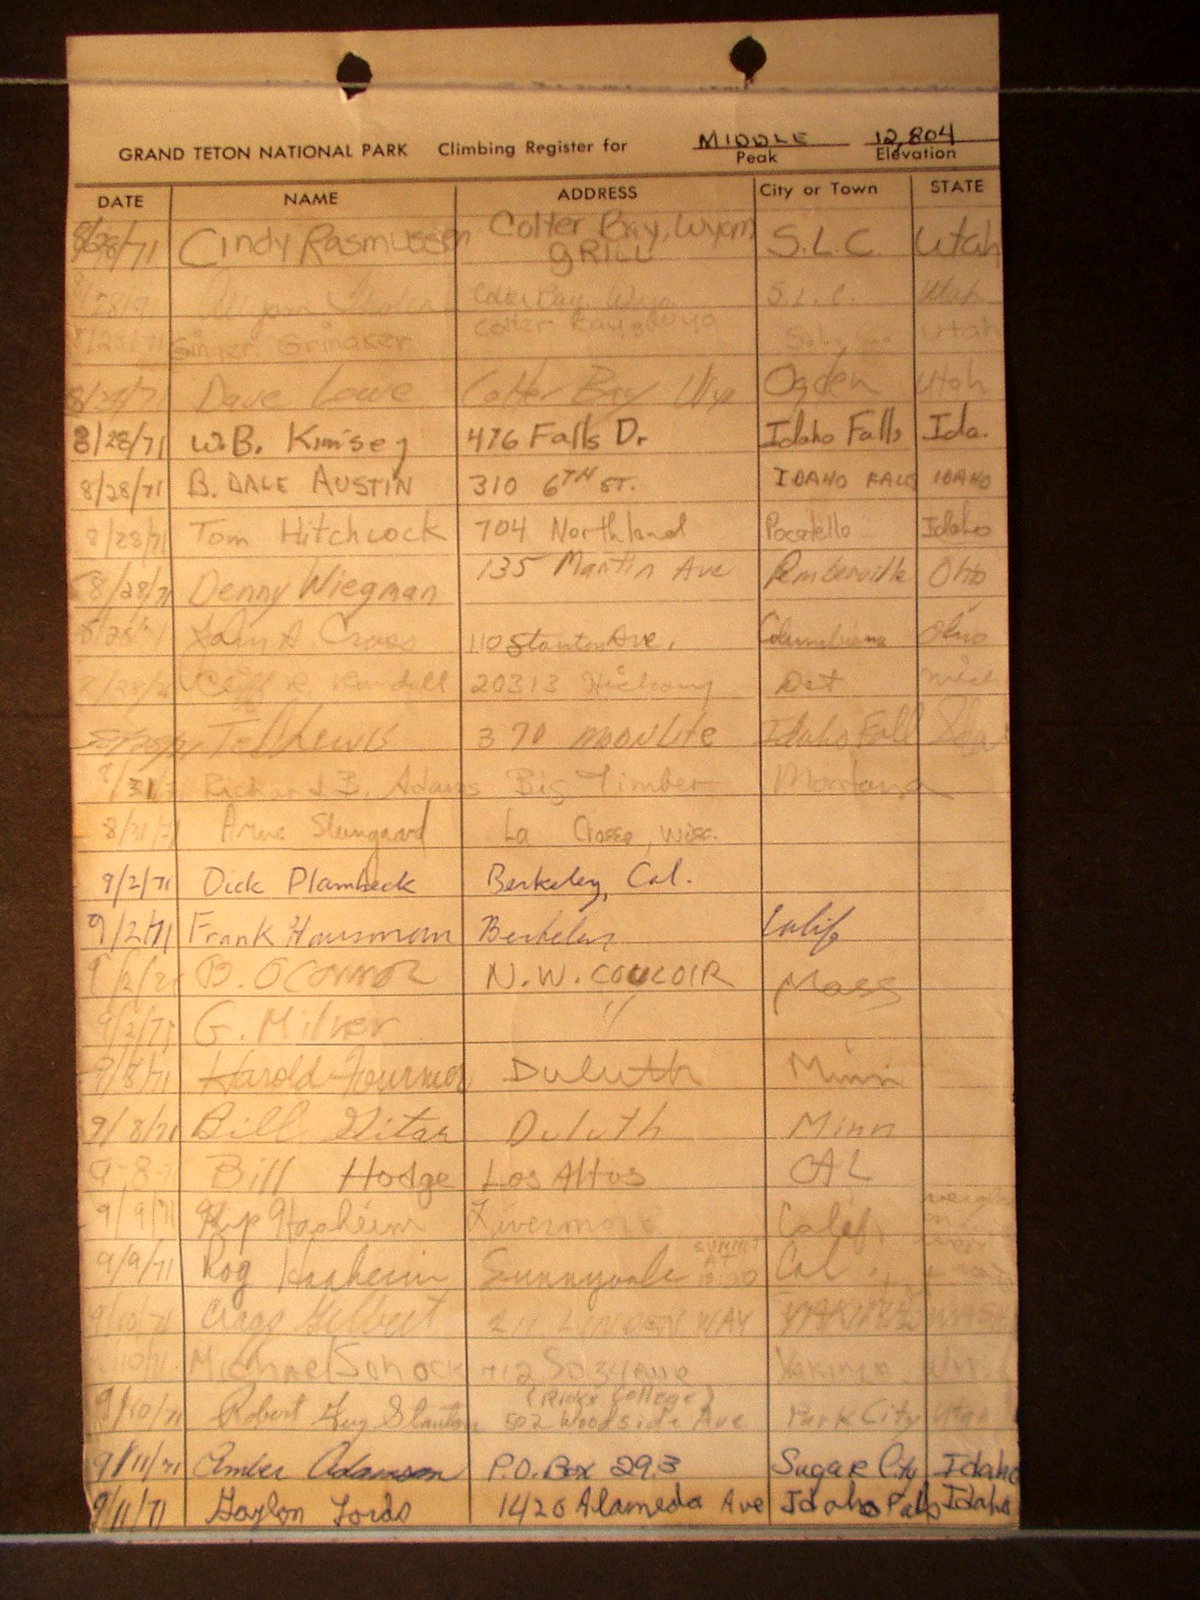 GRAND TETON NATIONAL PARK Climbing Register for MIDDLE 12,804
Peak Elevation
DATE NAME ADDRESS City or Town STATE
8/28/71 Cindy Rasmussen Colter Bay, Wyom GRILL S.L.C Utah
8/28/71 Colter Bay, Wyo. S.L.C. Utah
8/28/71 Ginger Grinaker Colter Bay Utah
8/28/71 Dave Lowe Colter Bay Wyo Ogden Utah
8/28/71 W.B. Kimsey 476 Falls Dr Idaho Falls Ida.
8/28/71 B. DALE AUSTIN 310 6TH ST. IDAHO FALLS IDAHO
8/28/71 Tom Hitchcock 704 Northland Pocatello Idaho
8/28/71 Denny Wiegman 135 Martin Ave Pemberville Ohio
8/28/71 John A. Cross 110 Stanton Ave. Columbiana Ohio
Cliff R. Randall 20313 Hickory Det Mich
Lewis 370 MOONLITE Idaho Fall
8/31 Richard B. Adams Big Timber Montana
8/31/71 Arne La Crosse, Wisc.
9/2/71 Dick Plambeck Berkeley, Cal.
9/2/71 Frank Hausmann Berkeley Calif
9/2/71 B. O'Connor N.W. COULOIR Mass
9/2/71 G. Milner "
9/8/71 Harold Fournier Duluth Minn
9/8/71 Bill Duluth Minn
9-8- Bill Hodge Los Altos CAL
9/9/71 Kip Hapheim Livermore Calif.
9/9/71 Rog Hapheim Sunnyvale SUMMIT AT Cal.
9/10/71 Gilbert 211 LINDEN WAY YAKIMA WASH
9/10/71 Michael Schock 712 So 31 Ave Yakima
9/10/71 Robert Guy Stanton (Ricks College) 502 Woodside Ave Park City Utah
9/11/71 Amber Adamson P.O. Box 293 Sugar City Idaho
9/11/71 Gaylon Fords 1420 Alameda Ave Idaho Falls Idaho